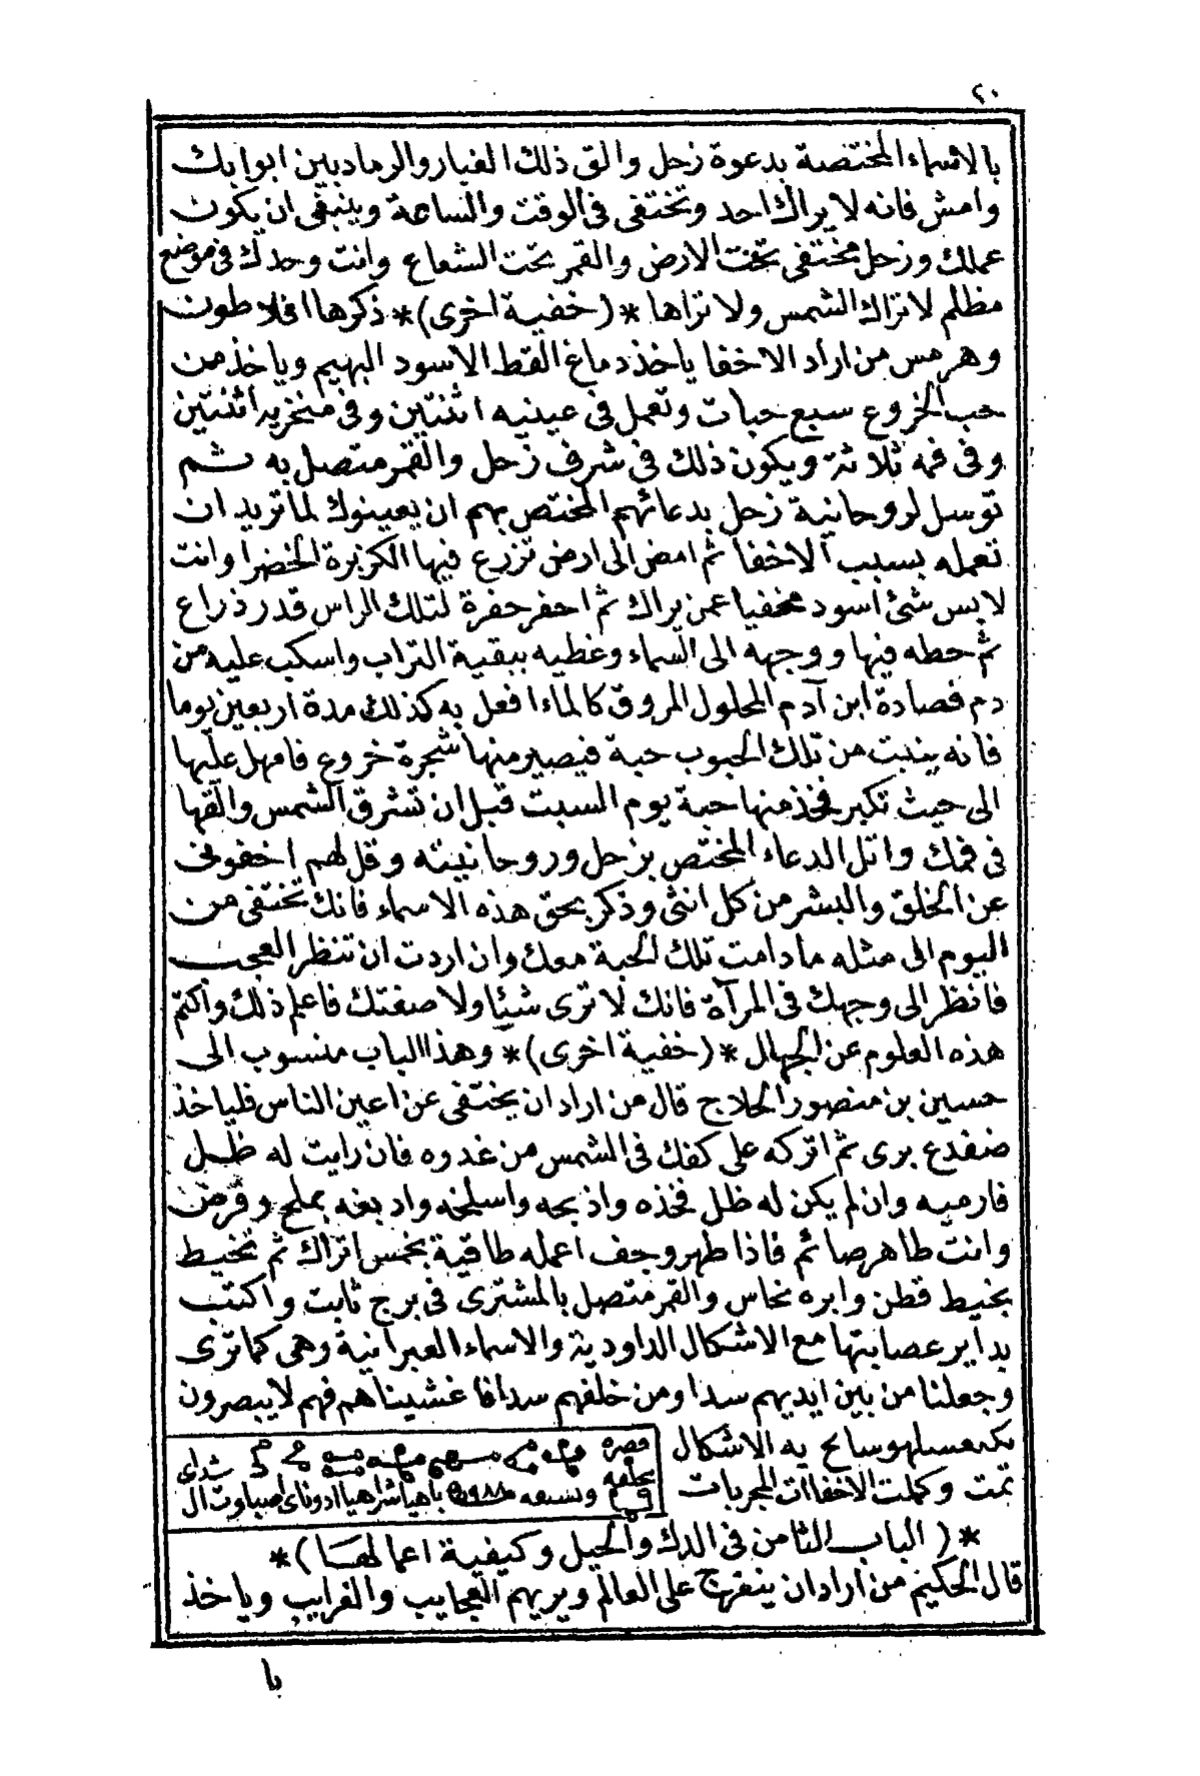 ٢٠
بالاسماء المختصة بدعوة زحل والق ذلك الغبار والرماد بين ابوابك
وامش فانه لا يراك احد وتختفى فى الوقت والساعة وينبغى ان يكون
عملك وزحل مختفى تحت الارض والقمر تحت الشعاع وانت وحدك فى موضع
مظلم لا تراك الشمس ولا تراها * (خفية اخرى) * ذكرها افلاطون
وهرمس من اراد الاخفا ياخذ دماغ القط الاسود البهيم وياخذ من
حب الخروع سبع حبات وتعمل فى عينيه اثنتين وفى منخريه اثنتين
وفى فمه ثلاثة ويكون ذلك فى شرف زحل والقمر متصل به ثم
توسل لروحانية زحل بدعائهم المختص بهم ان يعينوك لما تريد ان
تعمله بسبب الاخفا ثم امض الى ارض تزرع فيها الكزبرة الخضرا وانت
لابس شئ اسود مخفيا عمن يراك ثم احفر حفرة لتلك الراس قدر ذراع
ثم حطه فيها ووجهه الى السماء وغطيه ببقية التراب واسكب عليه من
دم فصادة ابن آدم المحلول المروق كالماء افعل به كذلك مدة اربعين يوما
فانه ينبت من تلك الحبوب حبة فيصير منها شجرة خروع فامهل عليها
الى حيث تكبر فخذ منها حبة يوم السبت قبل ان تشرق الشمس والقها
فى فمك واتل الدعاء المختص بزحل وروحانيته وقل لهم اخفونى
عن الخلق والبشر من كل انثى وذكر بحق هذه الاسماء فانك تختفى من
اليوم الى مثله ما دامت تلك الحبة معك وان اردت ان تنظر العجب
فانظر الى وجهك فى المرآة فانك لا ترى شيئا ولا صفتك فاعلم ذلك واكتم
هذه العلوم عن الجهال * (خفية اخرى) * وهذا الباب منسوب الى
حسين بن منصور الحلاج قال من اراد ان يختفى عن اعين الناس فلياخذ
ضفدع برى ثم اتركه على كفك فى الشمس من غدوه فان رايت له ظل
فارميه وان لم يكن له ظل فخذه واذبحه واسلخه وادبغه بملح وقرض
وانت طاهر صائم فاذا طهر وجف اعمله طاقية بخمس اتراك ثم تخيط
بخيط قطن وابره نحاس والقمر متصل بالمشترى فى برج ثابت واكتب
بداير عصابتها مع الاشكال الداودية والاسماء العبرانية وهى كما ترى
وجعلنا من بين ايديهم سدا ومن خلفهم سدا فاغشيناهم فهم لا يبصرون
به الاشكال
تمت وكملت الاخفاات المجربات
شداى
ياهيا شراهيا ادوناى اصباوت ال
* (الباب الثامن فى الدك والحيل وكيفية اعمالها) *
قال الحكيم من اراد ان يتفرج على العالم ويريهم العجايب والغرايب وياخذ
با